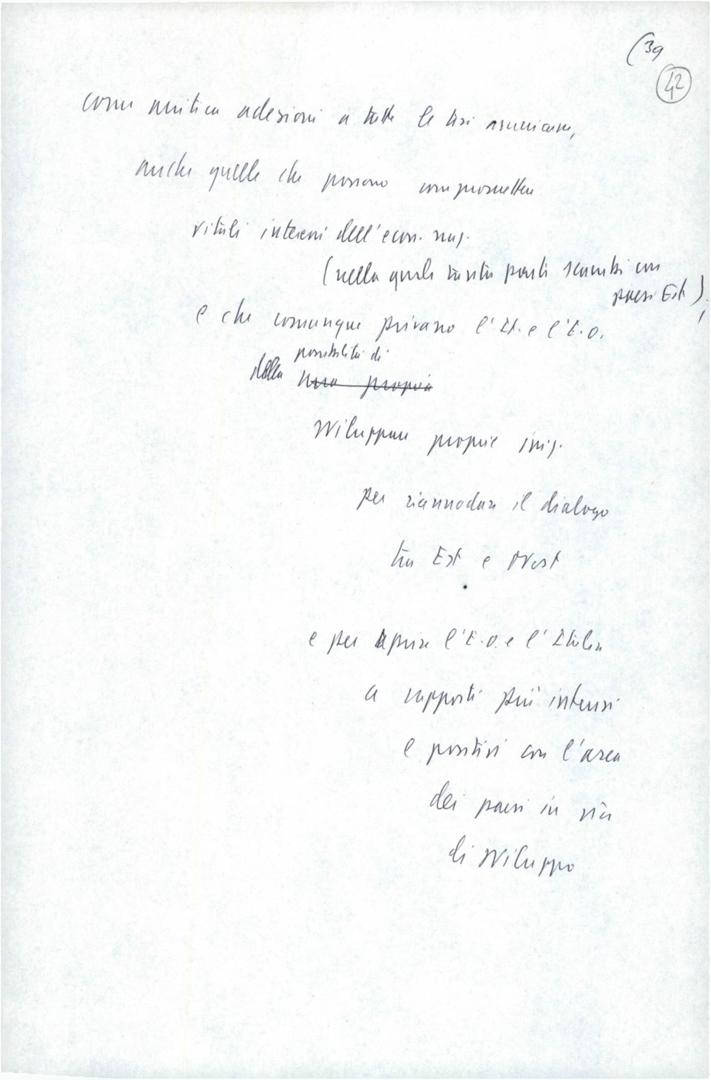 (39
42
come mitica adesioni a tutte le tesi americane,
anche quelle che possono compromettere
vitali interessi dell'econ. naz.
(nella quale tanta parte scambi con
paesi Est),
e che comunque privano l'It. e l'E.O.
possibilità di
della propria
sviluppare proprie iniz.
per riannodare il dialogo
tra Est e Ovest
e per aprire l'E.O. e l'Italia
a rapporti più intensi
e positivi con l'area
dei paesi in via
di sviluppo